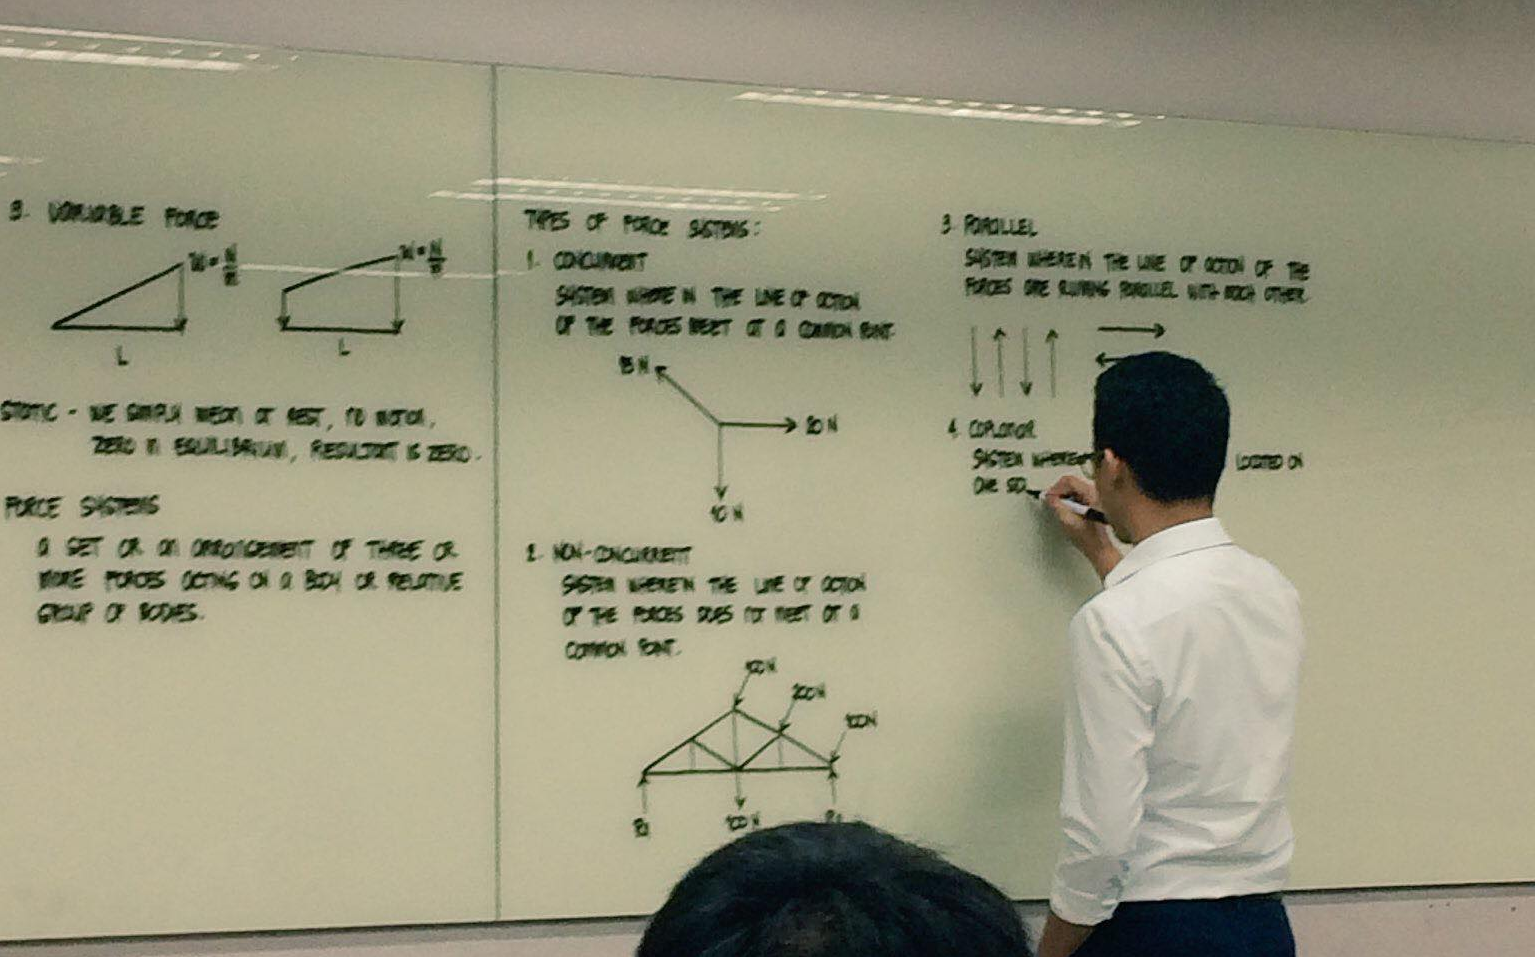 3. VARIABLE FORCE
W = N/m
W = N/m
L
L
STATIC - WE SIMPLY MEAN AT REST, NO MOTION,
ZERO IN EQUILIBRIUM, RESULTANT IS ZERO.
FORCE SYSTEMS
A SET OR AN ARRANGEMENT OF THREE OR
MORE FORCES ACTING ON A BODY OR RELATIVE
GROUP OF BODIES.
TYPES OF FORCE SYSTEMS:
1. CONCURRENT
SYSTEM WHERE IN THE LINE OF ACTION
OF THE FORCES MEET AT A COMMON POINT.
15 N
20 N
10 N
2. NON-CONCURRENT
SYSTEM WHEREIN THE LINE OF ACTION
OF THE FORCES DOES NOT MEET AT A
COMMON POINT.
100 N
200N
100N
R1
100 N
3. PARALLEL
SYSTEM WHEREIN THE LINE OF ACTION OF THE
FORCES ARE RUNING PARALLEL WITH EACH OTHER.
4. COPLANAR
SYSTEM WHERE LOCATED ON
ONE